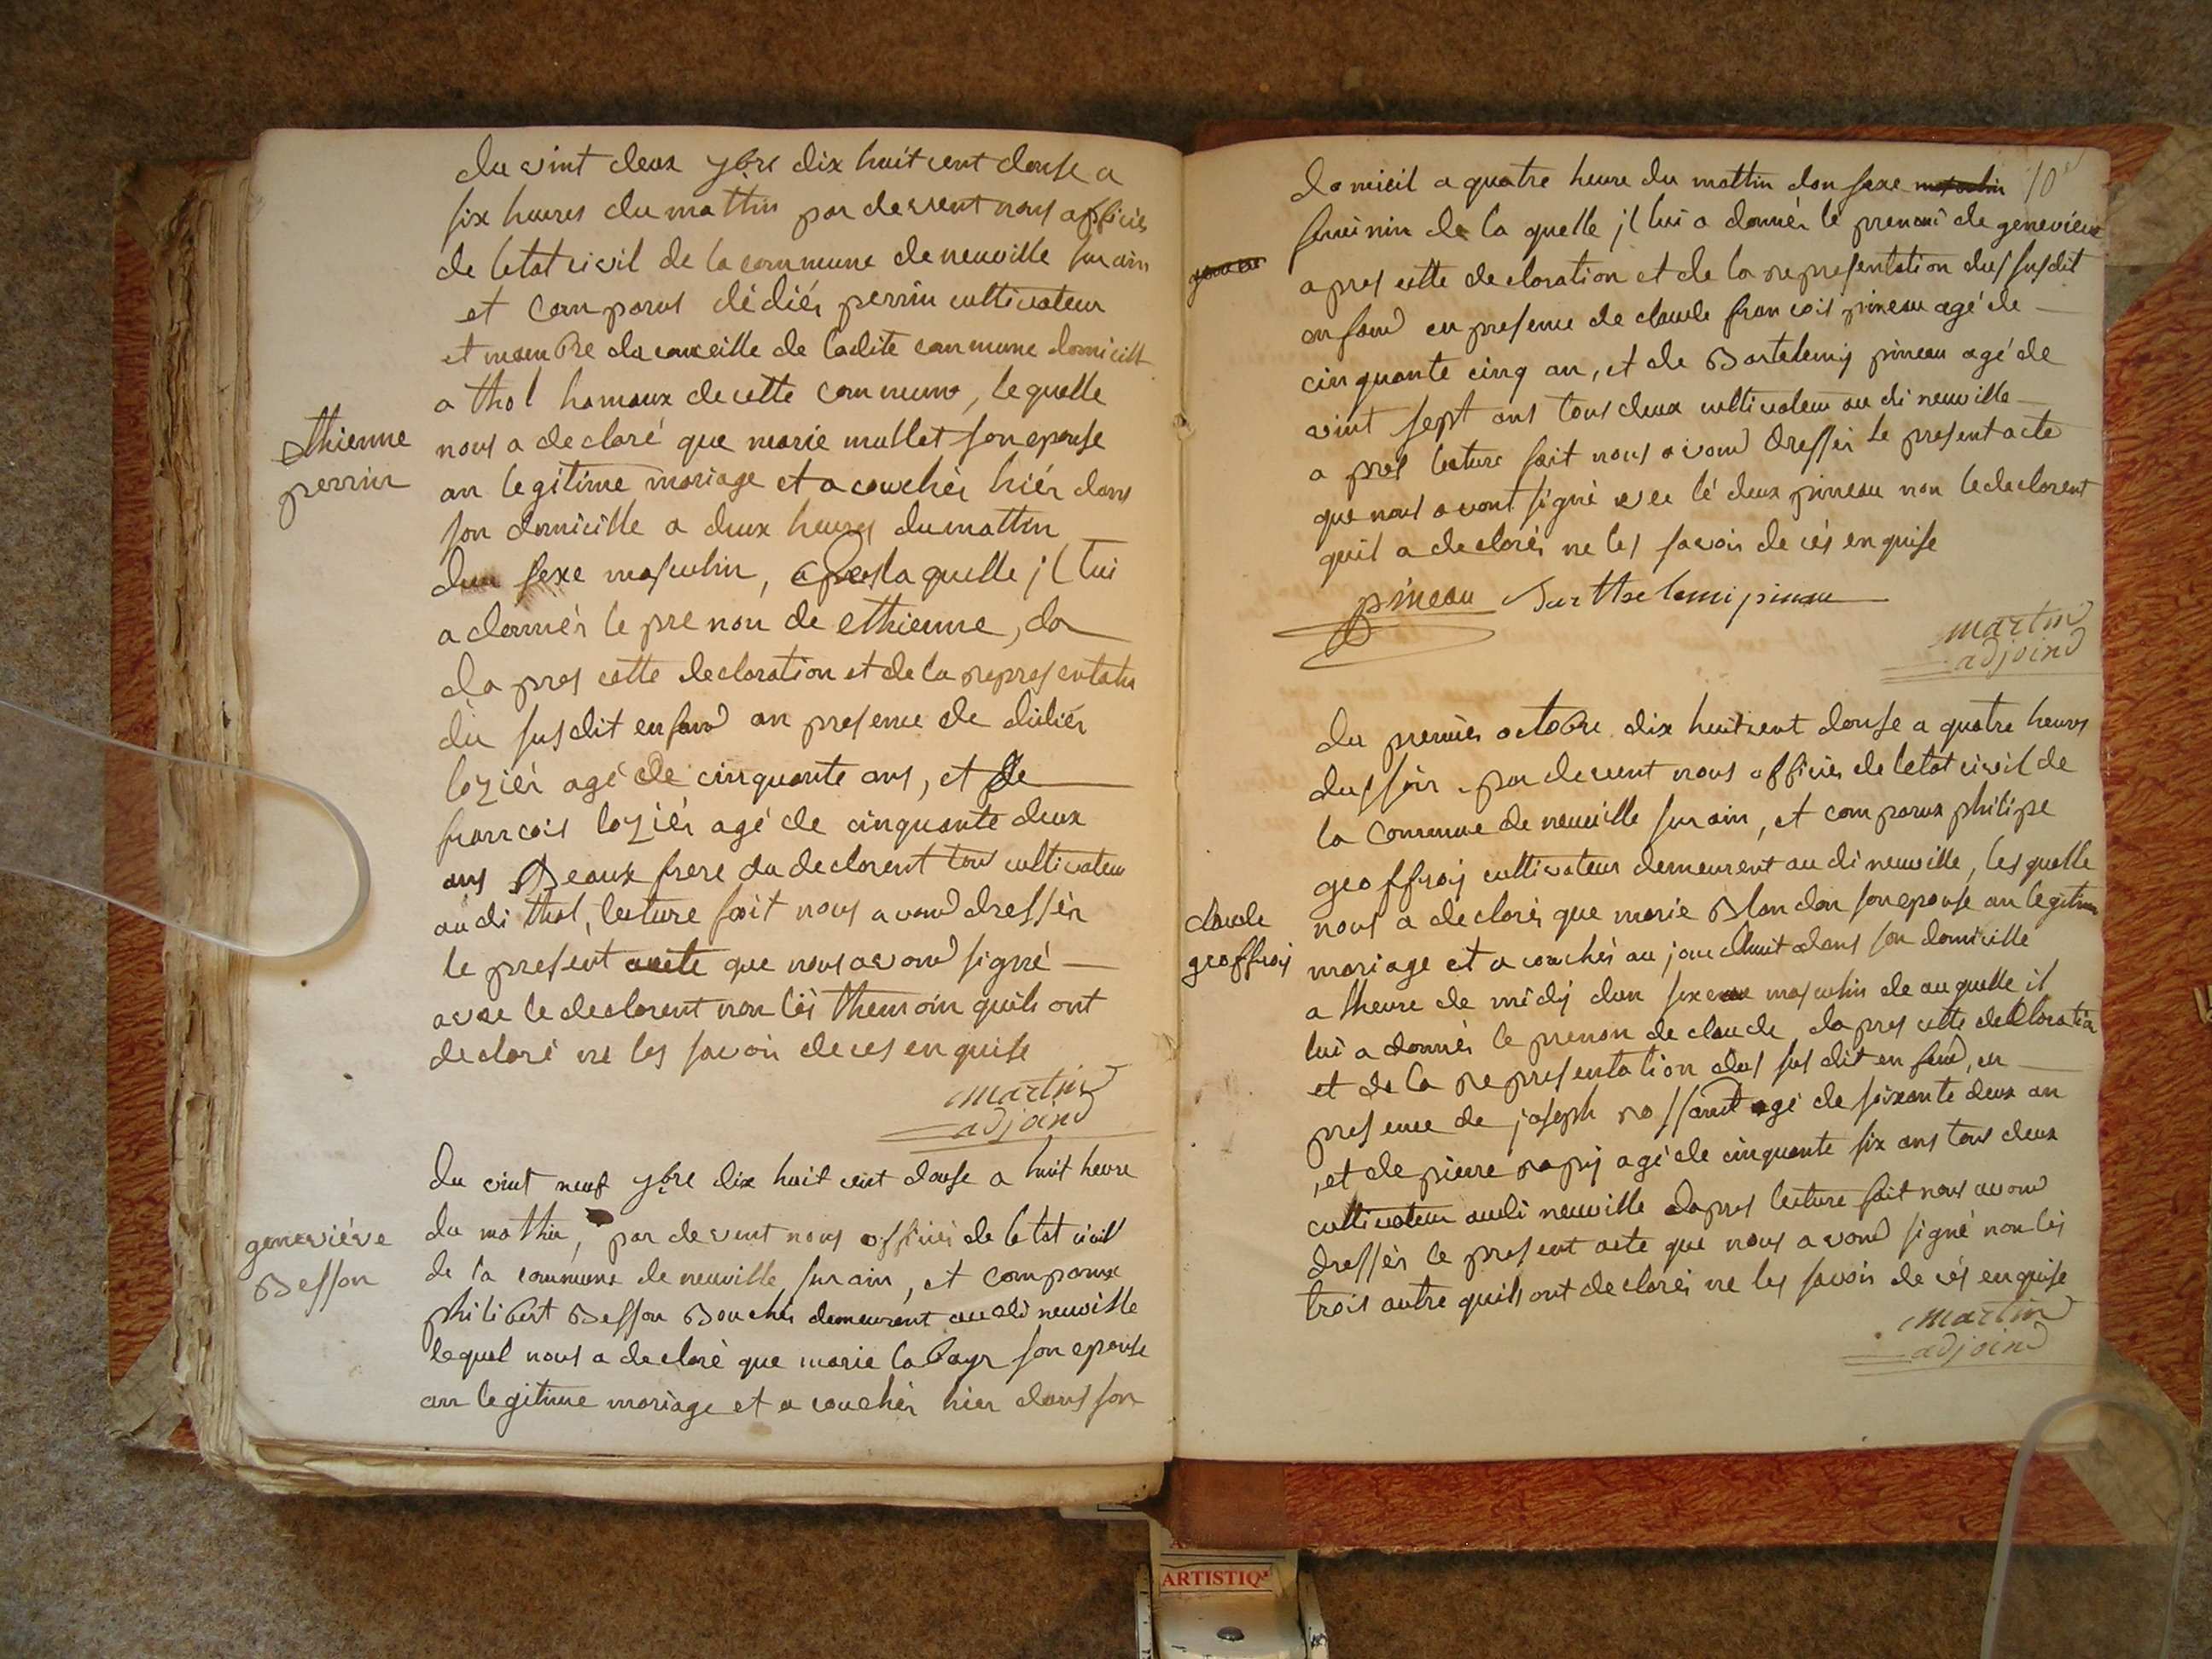 du vint deux 7bre dix huit cent douse a
six heures du mattin par devent nous officiér
de letat civil de la commune de neuville sur ain
et comparus didiér perrin cultivateur
et membre du conseille de ladite commune domicill
a thol hamaux de cette commune, le quelle
ethienne
perrin
nous a declaré que marie mullet son epouse
an legitime mariage et a couchér hiér dans
son domicille a deux heures du mattin
dun sexe masculin, a la quelle jl lui
a donnér le prenon de ethienne, da
dapres cette declaration et de la representatin
du susdit enfand an presence de didiér
loziér agé de cinquante ans, et de
francois loziér agé de cinquante deux
ans Beaux frere du declarent tous cultivateur
audi thol, lecture fait nous avond dressér
le present acte que nous avond signé
avec le declarent non lés themoin quils ont
declaré ne les savoir de ces enquise
martin
adjoind
du vint neuf 7bre dix huit cent douse a huit heure
geneviéve
Besson
du mattin, par devent nous officiér de letat civill
de la commune de neuville sur ain, et comparux
philibert Besson Bouchér demeurent audi neuville
lequel nous a declaré que marie labayr son epouse
an legitime mariage et a couchér hier dans son
10
domicil a quatre heure du mattin dun sexe masculin
feminin de la quelle jl lui a donnér le prenom de genevieve
apres cette declaration et de la representation dus susdit
enfand en presence de claude francois pineau agé de
cinquante cinq an, et de Bartelemy pineau agé de
vint sept ans tous deux cultivateur audi neuville
a pres lecture fait nous avond dressér le present acte
que nous avont signé avec lé deux pineau non le declarent
quil a declarér ne les savoir de cés enquise
pineau Barthelemi pineau
martin
adjoind
du premiér octobre dix huit cent douse a quatre heures
dus soir par devent nous officiér de letat civil de
la commune de neuville sur ain, et comparux philipe
geoffroy cultivateur demeurent audi neuville, les quelle
claude
geoffroy
nous a declarér que marie Blondon son epouse an legitime
mariage et a couchér au jourdhuit dans son domicille
a lheure de midy dun sexe masculin de auquelle il
lui a donnér le prenon de claude dapres cette declaration
et de la representation dus susdit enfand, en
presence de joseph agé de soixante deux an
, et de pierre papy agé de cinquante six ans tous deux
cultivateur audi neuville dapres lecture fait nous avond
dressér le present acte que nous avond signé non lés
trois autre quils ont declarér ne les savoir de cés enquise
martin
adjoind
ARTISTIQ